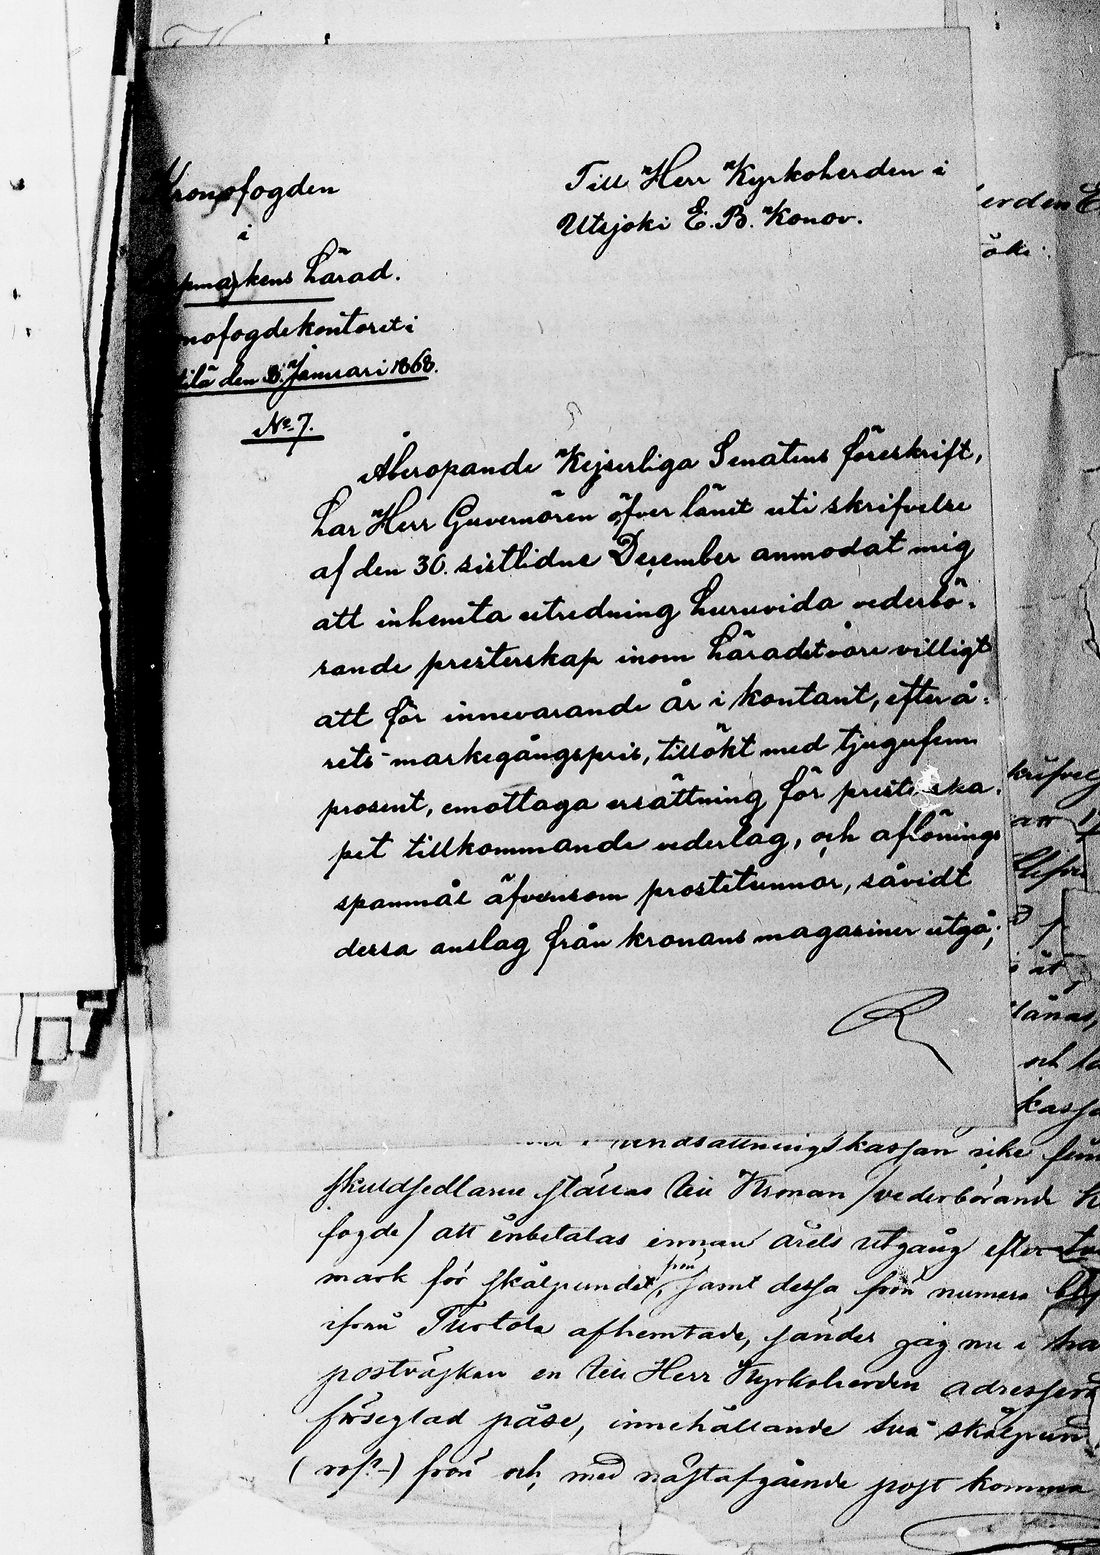 Kronofogden
i
Lappmarkens härad.
Kronofogdekontoret i
den 8. Januari 1868.
No 7.
Till Herr Kyrkoherden i
Utsjoki E. B. Konov.
Åberopande Kejserliga Senatens föreskrift,
har Herr Guvernören öfver länet uti skrifvelse
af den 30. sistlidne December anmodat mig
att inhemta utredning huruvida vederbö-
rande presterskap inom häradet vore villigt
att för innevarande år i kontant, efter å-
rets markegångspris, tillökt med tjugufem
prosent, emottaga ersättning för presterska-
pet tillkommande vederlag, och aflönings
spanmål äfvensom prostetunnor, såvidt
dessa anslag från kronans magasiner utgå;
R
erden E
krifvel
och
kassa
undsättningskassan icke
skuldsedlarne ställas till Kronan /vederbörande K
fogde/ att inbetalas innan årets utgång efter
mark för skålpundet, samt dessa frön numera
från
ifrån Turtola afhemtade, sänder jag nu i
postväskan en till Herr Kyrkoherden adresserad
förseglad påse, innehållande två skålpund
frön och med nästafgående post komma